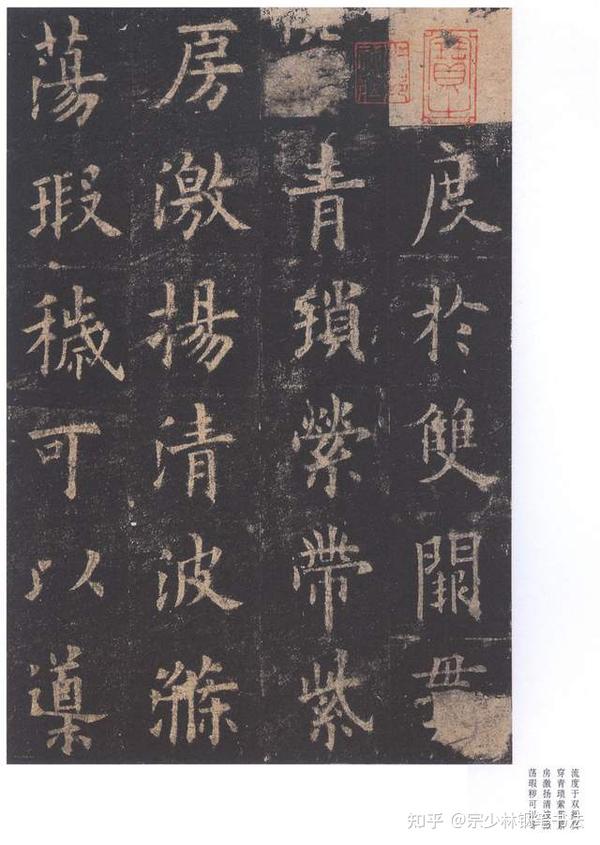 度於雙闕
青瑣縈帶紫
房激揚清波滌
蕩瑕穢可以導
流度于双
穿青琐萦
房激扬清
荡瑕秽可
知乎 @宗少林钢笔书法